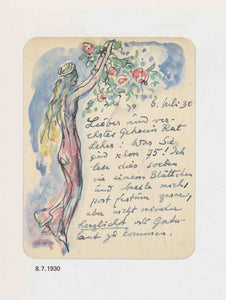 6. Juli 30
Lieber und ver-
ehrter Geheim Rat
Lehrs: Was Sie
sind schon 75! Ich
lese dies soeben
in einem Blättchen
und beeile mich,
post festum zwar,
aber nicht minder
herzlichst als Gratu-
lant zu kommen.
8.7.1930